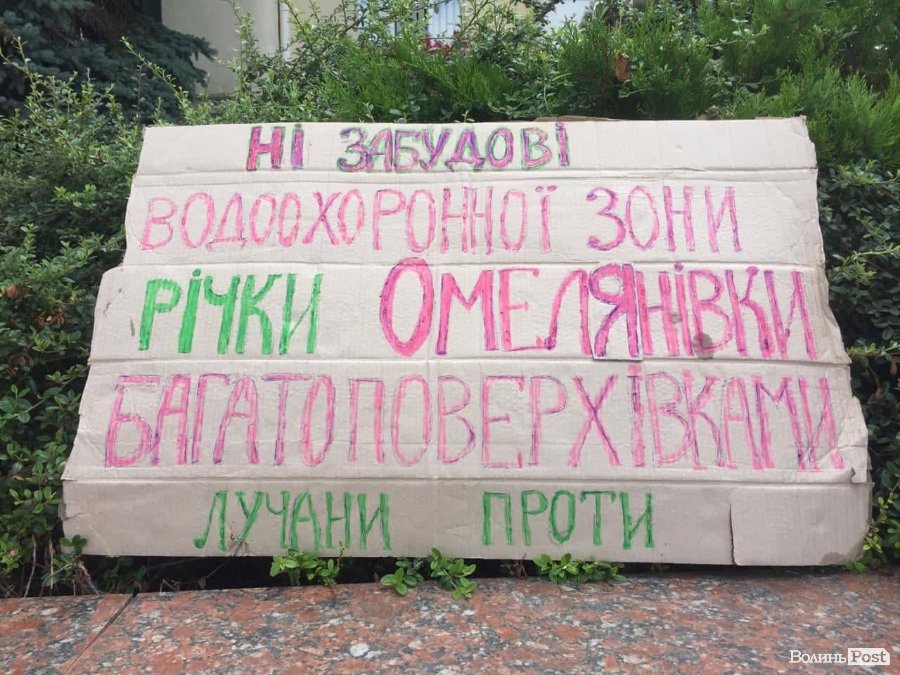 НІ ЗАБУДОВІ
ВОДООХОРОННОЇ ЗОНИ
РІЧКИ ОМЕЛЯНІВКИ
БАГАТОПОВЕРХІВКАМИ
ЛУЧАНИ ПРОТИ
Волинь Post